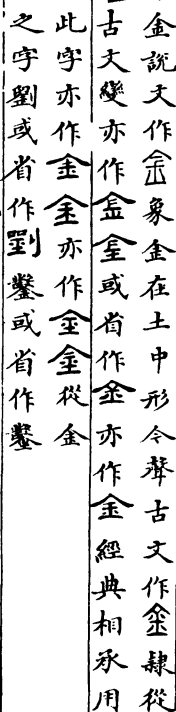 金說文作金象金在土中形今聲古文作金隷從
古文變亦作金金或省作金亦作金經典相承用
此字亦作金金亦作金金從金
之字劉或省作劉鑿或省作鑿